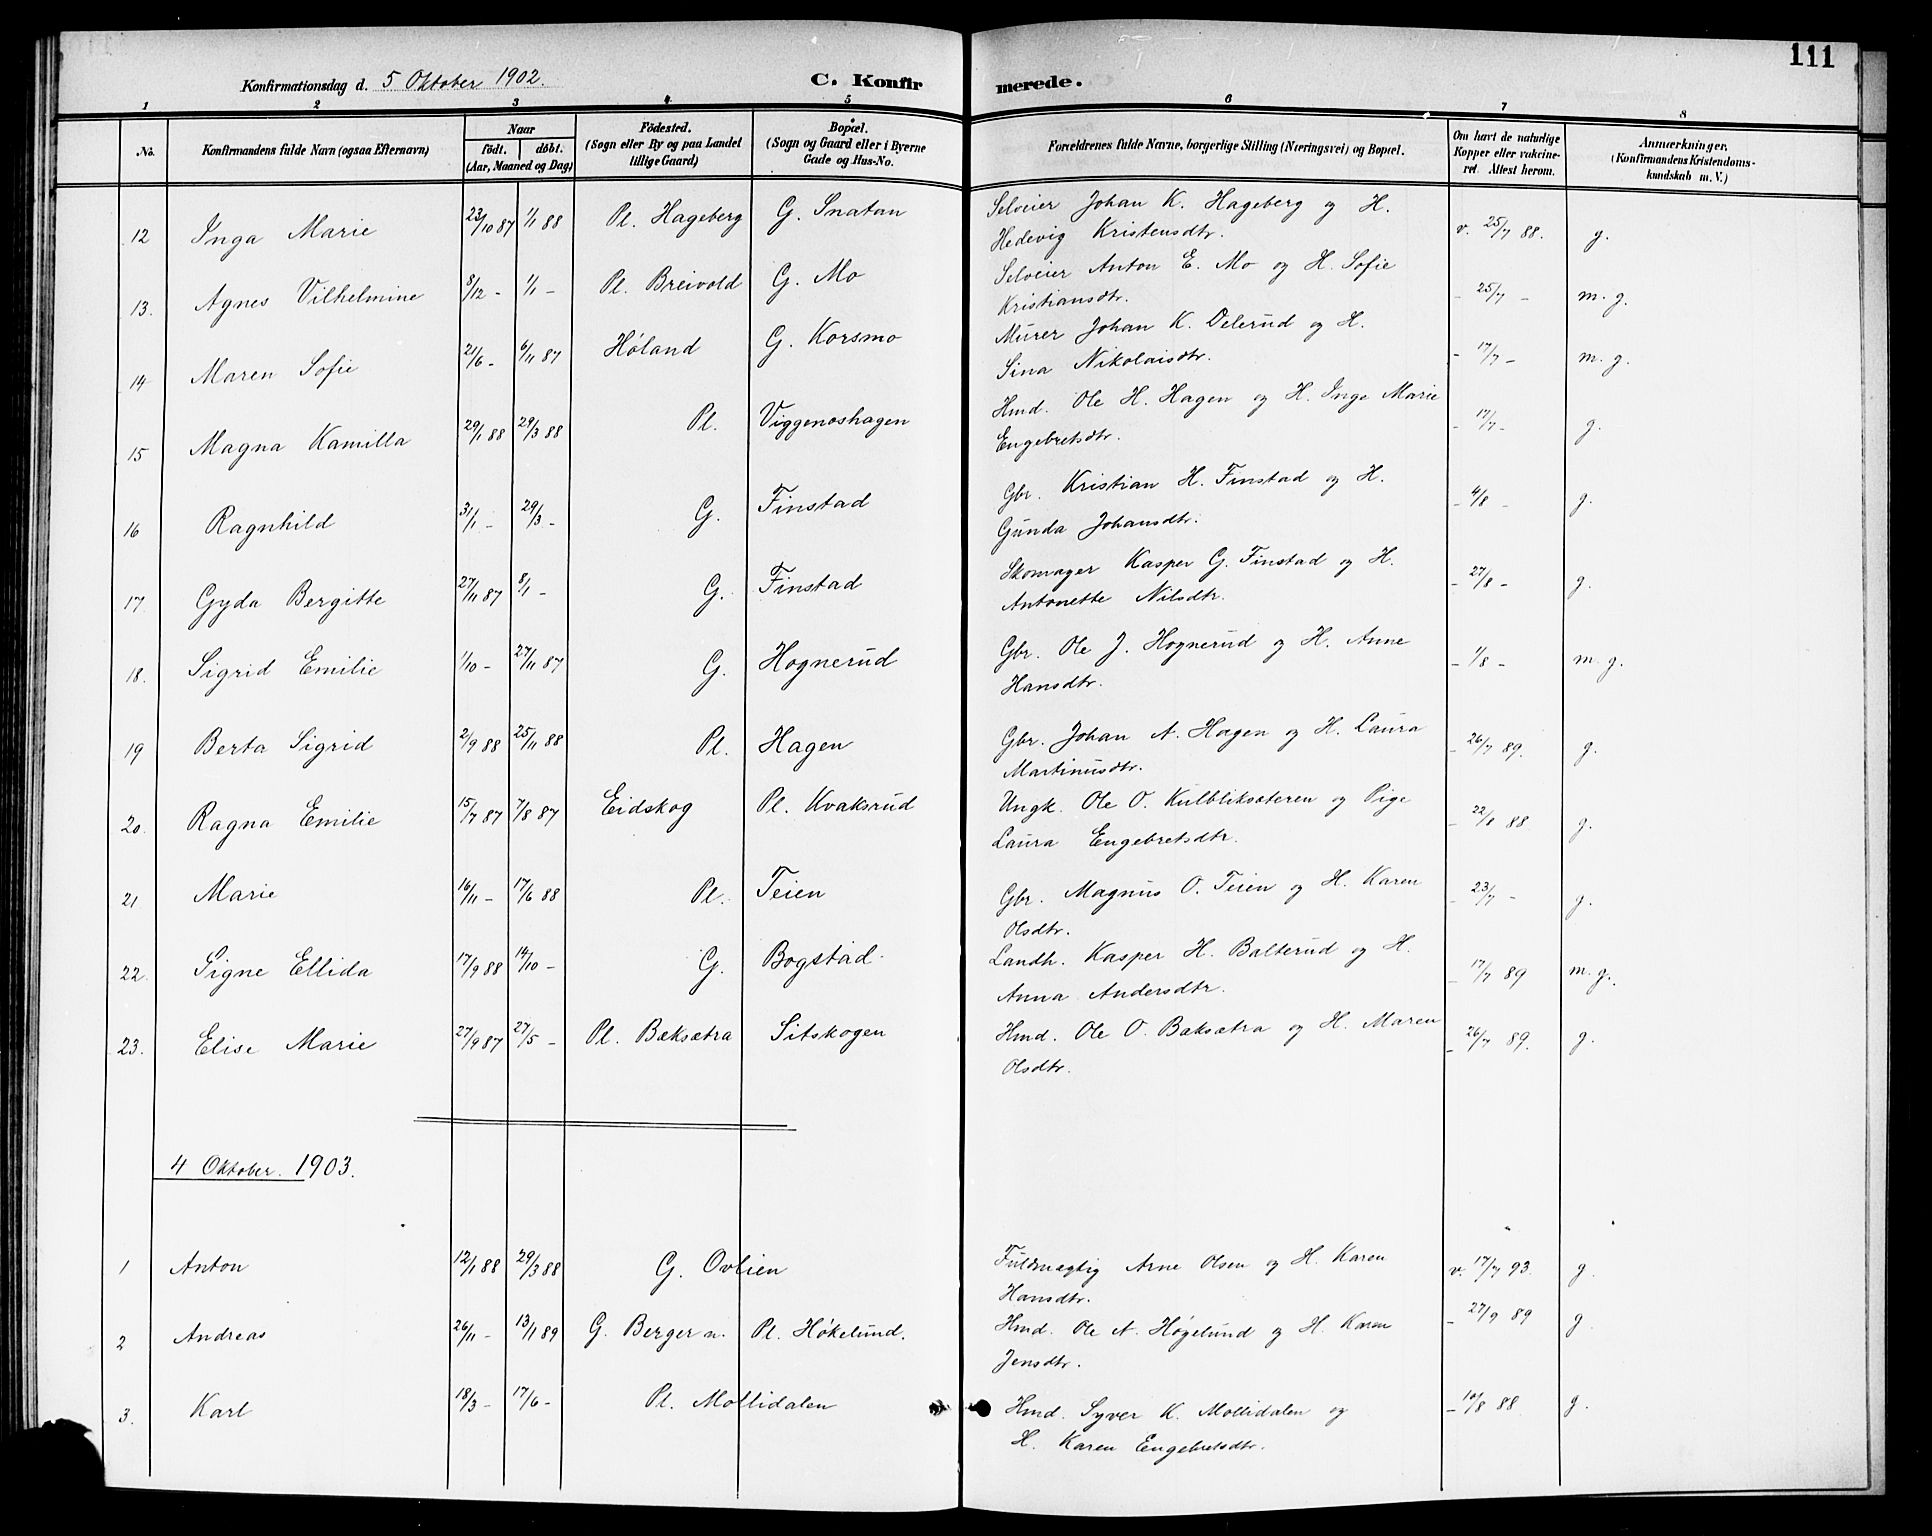 111
Konfirmationsdag d. 5 Oktober 1902. C. Konfirmerede.
1 2 3 4 5 6 7 8
No. Konfirmandens fulde Navn (ogsaa Efternavn) Naar födt. döbt. (Aar, Maaned og Dag) Födested. (Sogn eller By og paa Landet tillige Gaard) Bopæl. (Sogn og Gaard eller i Byerne Gade og Hus-No. Forældrenes fulde Navne, borgerlige Stilling (Næringsvei) og Bopæl. Om havt de naturlige Kopper eller vakcineret Attest herom. Anmærkninger, (Konfirmandens Kristendomskundskab m. V.)
12 Inga Marie 23/10 87 1/1 88 Pl. Hageberg G. Snatan Selveier Johan K. Hageberg og H. Hedevig Kristensdtr. v. 25/7 88. g.
13. Agnes Vilhelmine 8/12 - 1/1 - Pl. Breivold G. Mo Selveier Anton E. Mo og H. Sofie Kristiansdtr. - 25/7 - m. g.
14 Maren Sofie 21/6 - 6/11 87 Høland G. Korsmo Murer Johan K. Delerud og H. Sina Nikolaisdtr. - 17/7 - m. g.
15 Magna Kamilla 29/1 88 29/3 88 Pl. Viggenoshagen Hmd. Ole H. Hagen og H. Inge Marie Engebretsdtr. - 17/7 - g.
16 Ragnhild 31/1 - 29/3 - G. Finstad Gbr. Kristian H. Finstad og H. Gunda Johansdtr. - 4/8 - g.
17. Gyda Bergitte 27/11 87 8/1 - G. Finstad Skomager Kasper G. Finstad og H. Antonette Nilsdtr. - 27/8 - g.
18. Sigrid Emilie 1/10 - 27/11 87 G. Hognerud Gbr. Ole J. Hognerud og H. Anne Hansdtr. - 1/8 - m. g.
19 Berta Sigrid 2/9 88 25/11 88 Pl. Hagen Gbr. Johan A. Hagen og H. Laura Martinusdtr. - 26/7 89. g.
20. Ragna Emilie 15/7 87 7/8 87 Eidskog Pl. Kvaksrud Ungk. Ole O. Kulbliksæteren og Pige Laura Engebretsdtr. - 22/8 88 g.
21 Marie 16/11 - 17/6 88 Pl. Teien Gbr. Magnus O. Teien og H. Karen Olsdtr. - 23/7 - g.
22. Signe Ellida 17/9 88 14/10 - G. Bogstad. Landh. Kasper H. Balterud og H. Anna Andersdtr. - 17/7 89 m. g.
23. Elise Marie 27/9 87 27/5 - Pl. Bæksætra Sitskogen Hmd. Ole O. Bæksætra og H. Maren Olsdtr. - 26/7 89. g.
4 Oktober. 1903.
1 Anton 12/1 88 29/3 88 G. Ovlien Fuldmægtig Arne Olsen og H. Karen Hansdtr. v. 17/7 93. g.
2 Andreas 26/11 - 13/1 89 G. Berger n. Pl. Høkelund. Hmd. Ole A. Høgelund og H. Karen Jensdtr. - 27/9 89 g.
3. Karl 18/3 - 17/6 - Pl. Mollidalen Hmd. Syver K. Mollidalen og H. Karen Engebretsdtr. - 10/8 88 g.